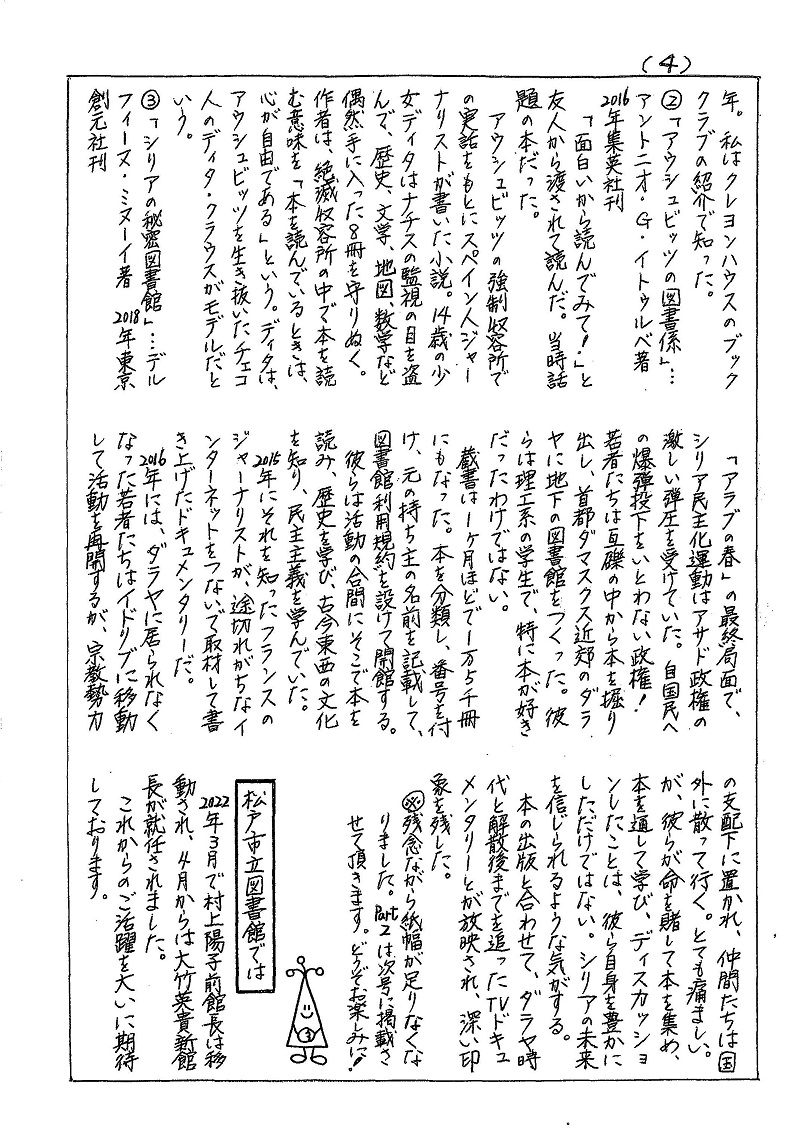 (4)
年。私はクレヨンハウスのブック
クラブの紹介で知った。
②「アウシュビッツの図書係」…
アントニオ・G・イトゥルベ著
2016年集英社刊
「面白いから読んでみて!」と
友人から渡されて読んだ。当時話
題の本だった。
アウシュビッツの強制収容所で
の実話をもとにスペイン人ジャー
ナリストが書いた小説。14歳の少
女ディタはナチスの監視の目を盗
んで、歴史、文学、地図、数学など
偶然手に入った8冊を守りぬく。
作者は、絶滅収容所の中で本を読
む意味を「本を読んでいるときは、
心が自由である」という。ディタは、
アウシュビッツを生き抜いたチェコ
人のディタ・クラウスがモデルだと
いう。
③「シリアの秘密図書館」…デル
フィーヌ・ミヌーイ著 2018年東京
創元社刊
「アラブの春」の最終局面で、
シリア民主化運動はアサド政権の
激しい弾圧を受けていた。自国民へ
の爆弾投下をいとわない政権!
若者たちは瓦礫の中から本を掘り
出し、首都ダマスクス近郊のダラ
ヤに地下の図書館をつくった。彼
らは理工系の学生で、特に本が好き
だったわけではない。
蔵書は1ヶ月ほどで一万5千冊
にもなった。本を分類し、番号を付
け、元の持ち主の名前を記載して、
図書館利用規約を設けて開館する。
彼らは活動の合間にそこで本を
読み、歴史を学び、古今東西の文化
を知り、民主主義を学んでいた。
2015年にそれを知ったフランスの
ジャーナリストが、途切れがちなイ
ンターネットをつないで取材して書
き上げたドキュメンタリーだ。
2016年には、ダラヤに居られなく
なった若者たちはイドリブに移動
して活動を再開するが、宗教勢力
の支配下に置かれ、仲間たちは国
外に散って行く。とても痛ましい。
が、彼らが命を賭して本を集め、
本を通して学び、ディスカッショ
ンしたことは、彼ら自身を豊かに
しただけではない。シリアの未来
を信じられるような気がする。
本の出版と合わせて、ダラヤ時
代と解散後までを追ったTVドキュ
メンタリーとが放映され、深い印
象を残した。
※残念ながら紙幅が足りなくな
りました。Part2は次号に掲載さ
せて頂きます。どうぞお楽しみに!
3
松戸市立図書館では
2022年3月で村上陽子前館長は移
動され、4月からは大竹英貴新館
長が就任されました。
これからのご活躍を大いに期待
しております。